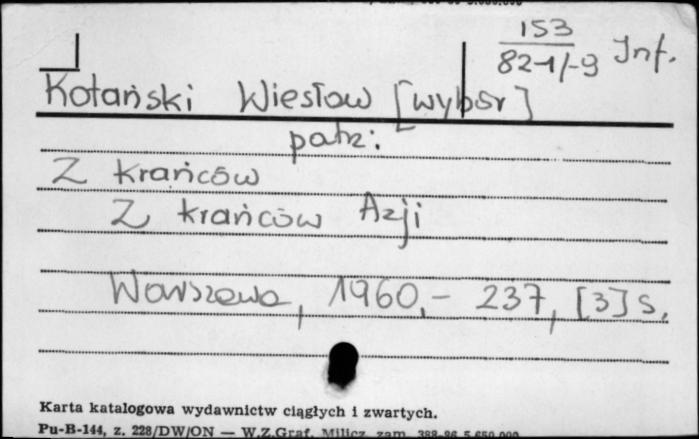 153
82-1/-9 Inf.
Kotański Wiesław [wybór]
patrz:
Z krańców
Z krańców Azji
Warszawa, 1960,- 237, [3] s.
Karta katalogowa wydawnictw ciągłych i zwartych.
Pu-B-144, z. 228/DW/ON — W.Z.Graf. Milicz, zam. 388-86 5.650.000